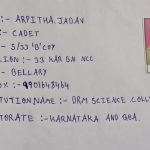 :- ARPITHA JADAV
:- CADET
:- S/SJ 'B' COY
LION :- 33 KAR BN NCC
:- BELLARY
:- 9901648464
TUTION NAME :- DRM SCIENCE COLL
TORATE :- KARNATAKA AND GOA.